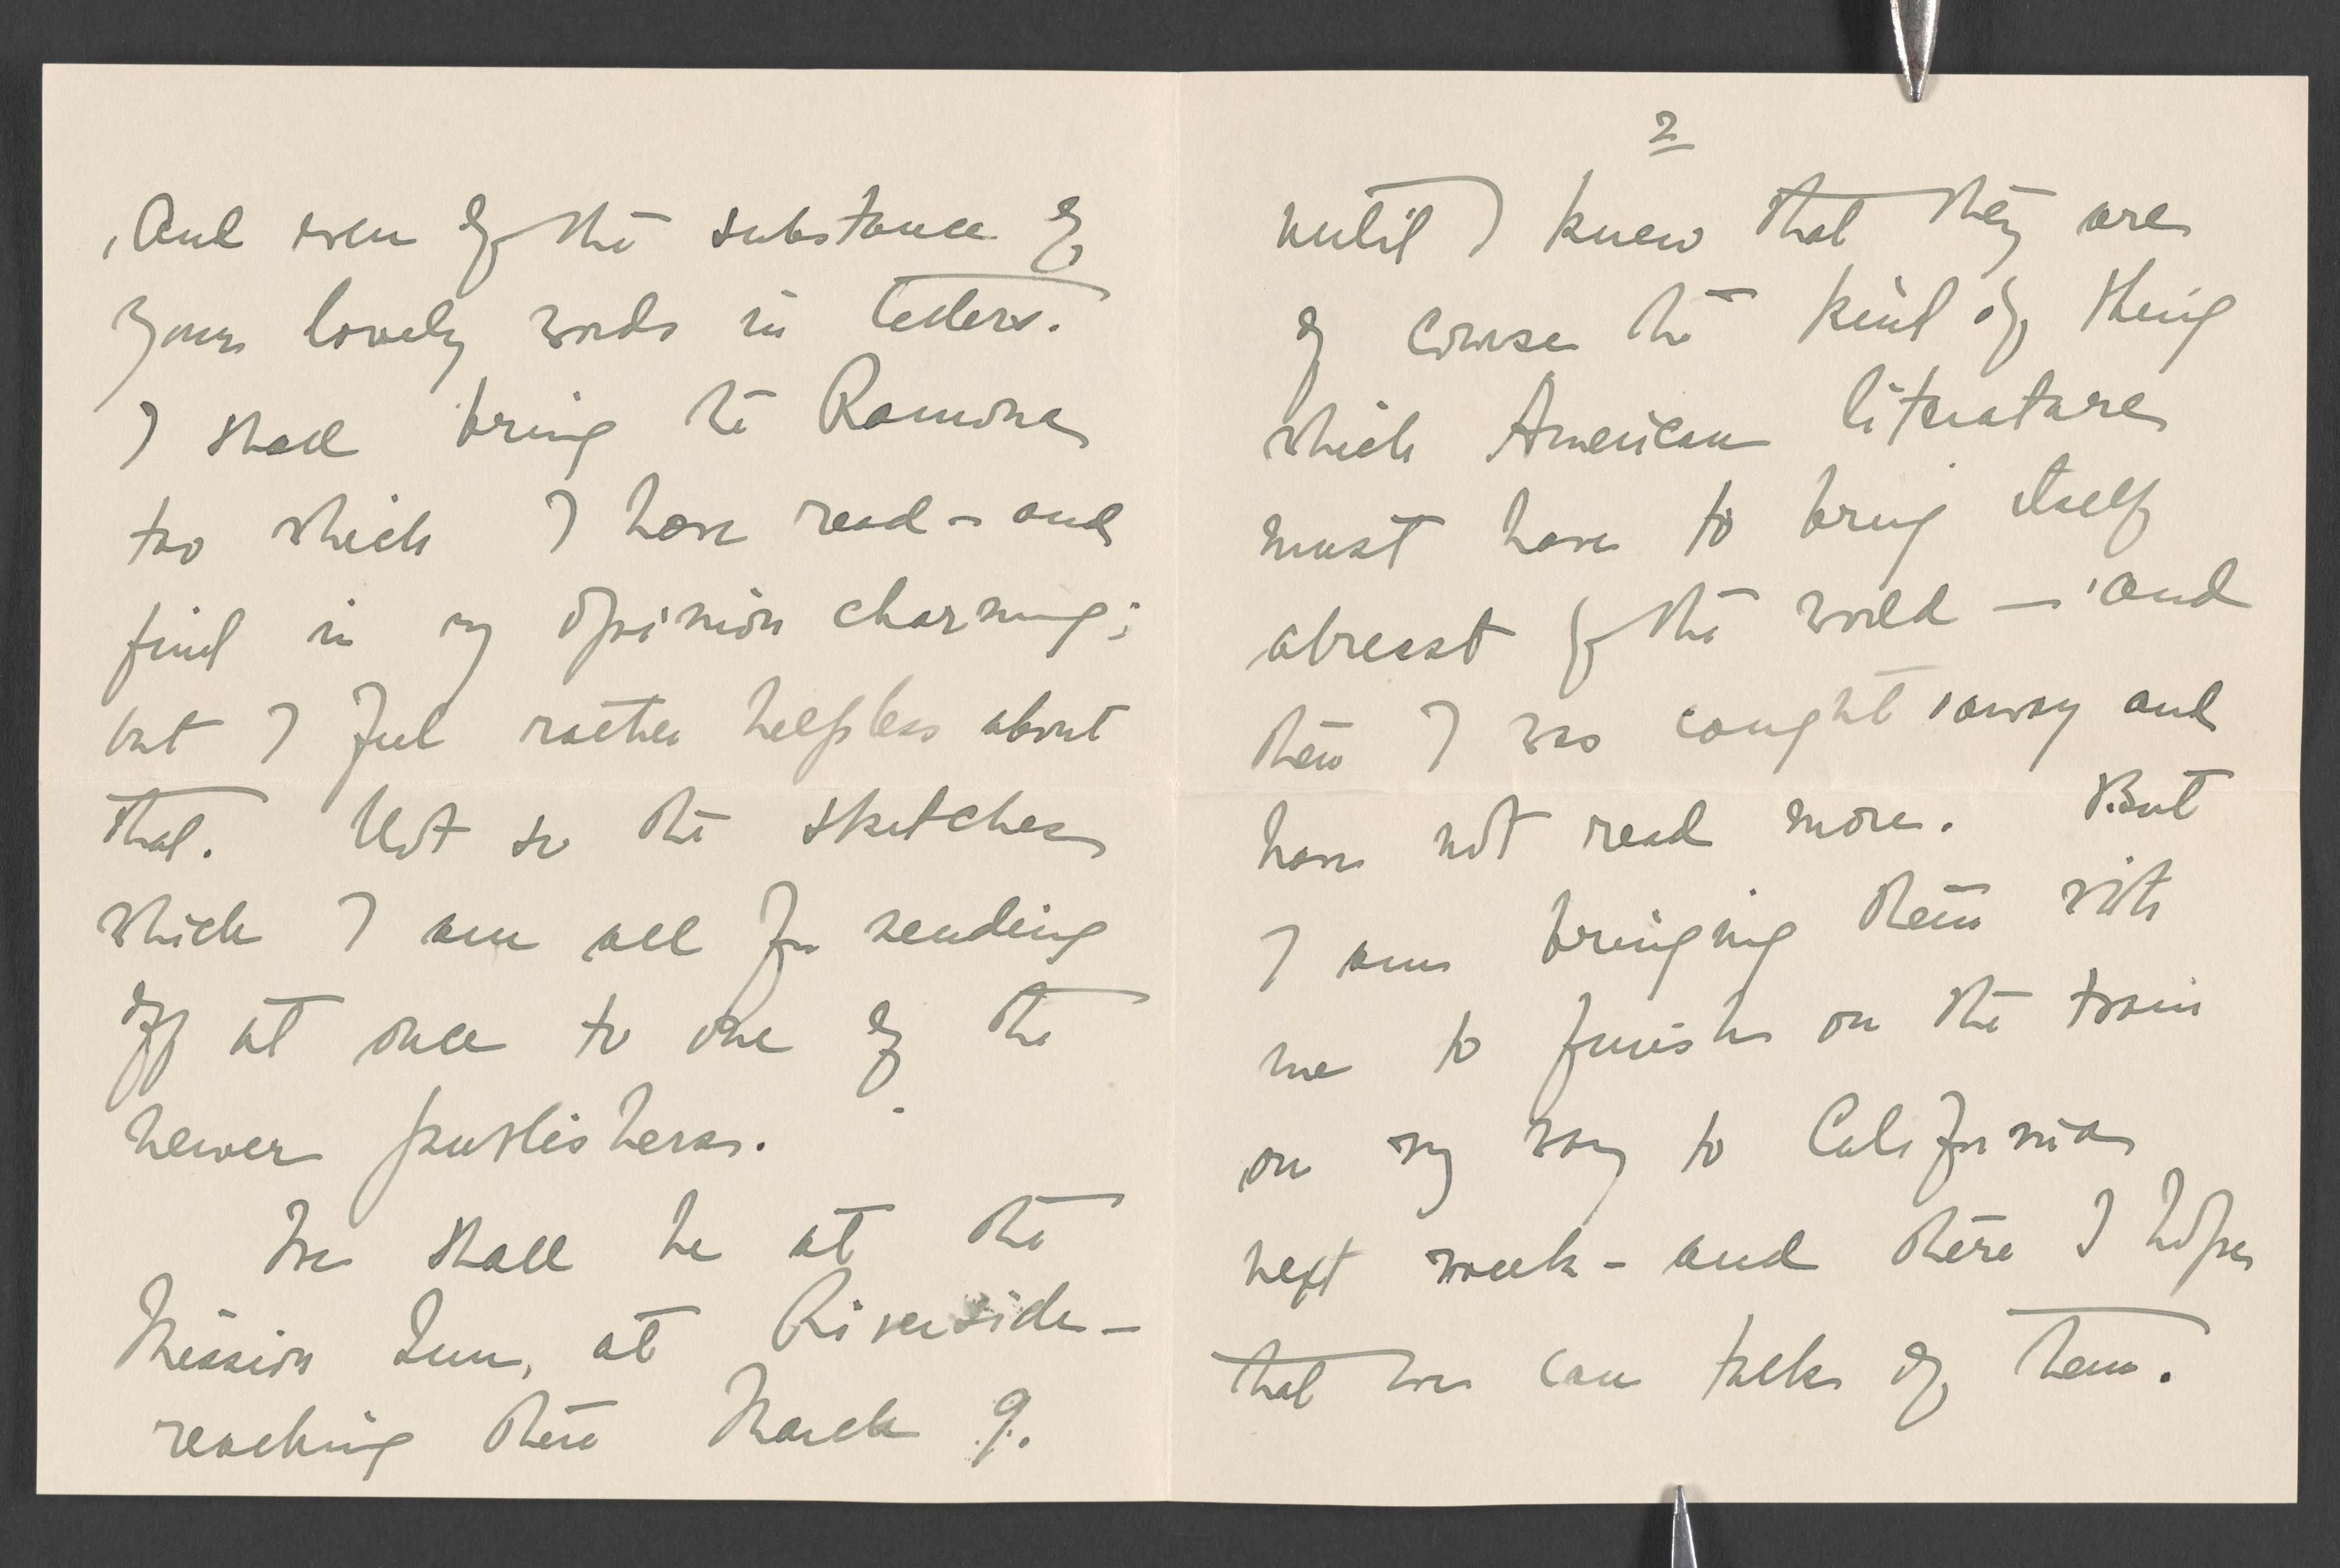 2
until I knew that they are
of course the kind of thing
which American literature
must have to bring itself
abreast of the world — and
then I was caught away and
have not read more. But
I am bringing them with
me to finish on the train
on my way to California
next week - and there I hope
that we can talk of them.
And even of the substance of
your lovely words in letters.
I shall bring the Ramona
too which I have read - and
find in my opinion charming;
but I feel rather helpless about
that. Not so the sketches
which I am all for sending
off at once to one of the
newer publishers.
We shall be at the
Mission Inn, at Riverside -
reaching there March 9.